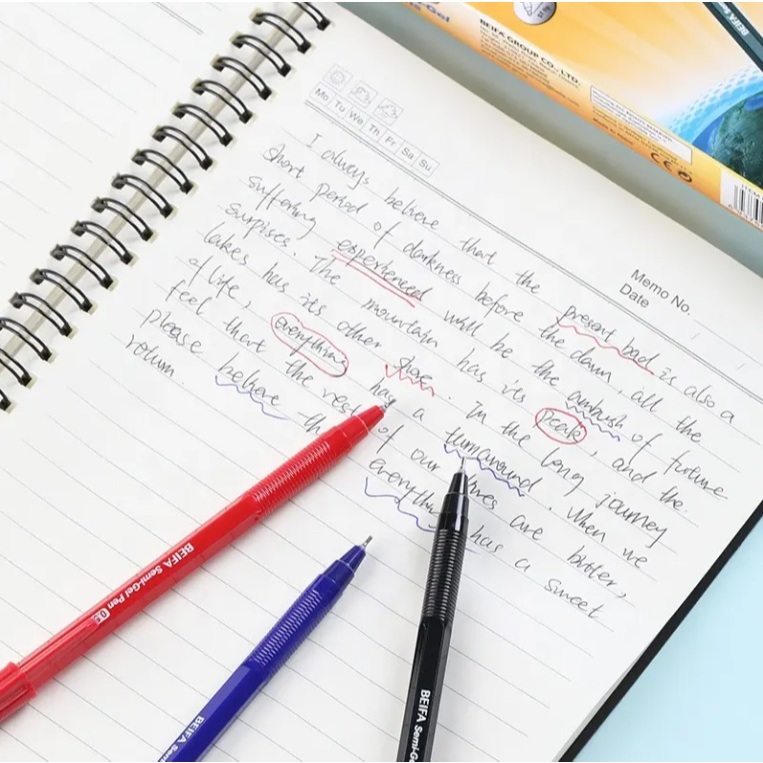 is Gel
BEIFA GROUP CO., LTD.
BEIFA
Mo Tu We Th Fr Sa Su
Memo No.
Date
I always believe that the present bad is also a
short period of darkness before the dawn, all the
suffering experienced will be the ambush of future
surpises. The mountain has its peak, and the
lakes has its other shore. In the long journey
of life, everything has a turnaround. When we
feel that the rest of our lives are bitter,
please believe everything has a sweet
return.
BEIFA Semi-Gel Pen 0.5
BEIFA Semi-Ge
BEIFA Semi-Ge